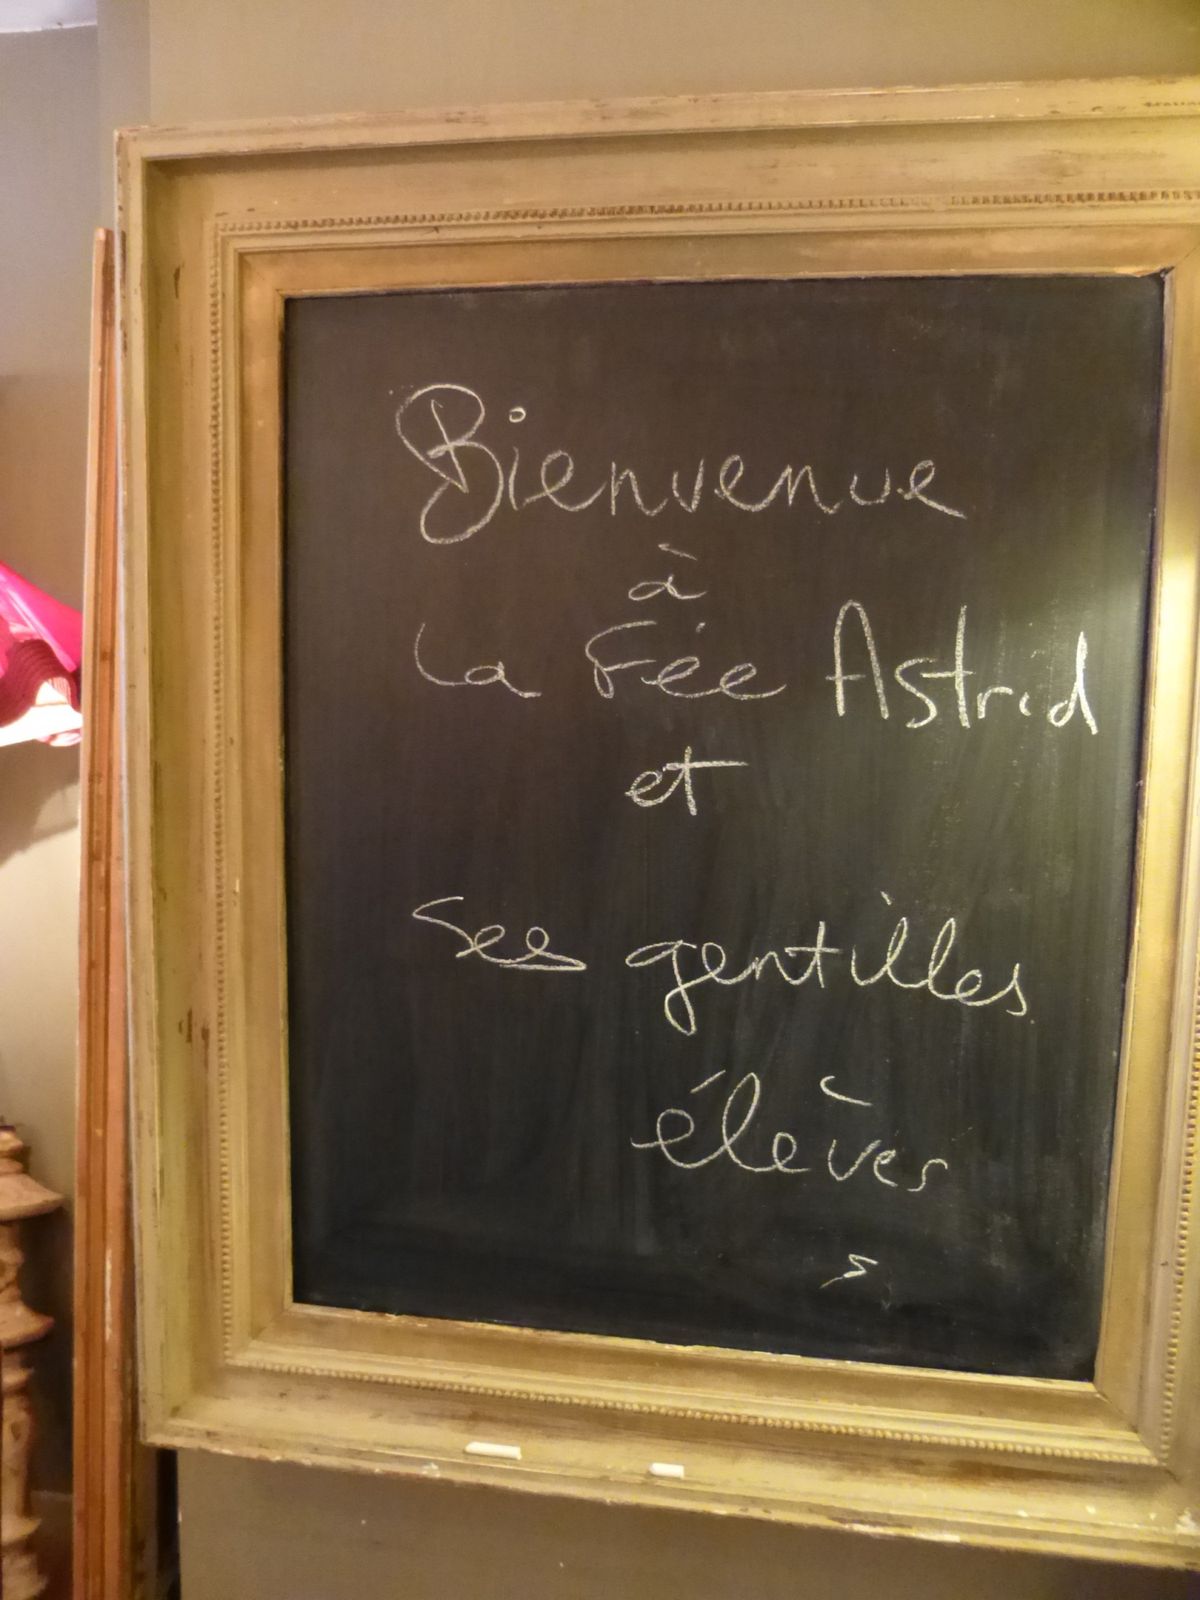 Bienvenue
à
La Fée Astrid
et
Ses gentilles
élèves